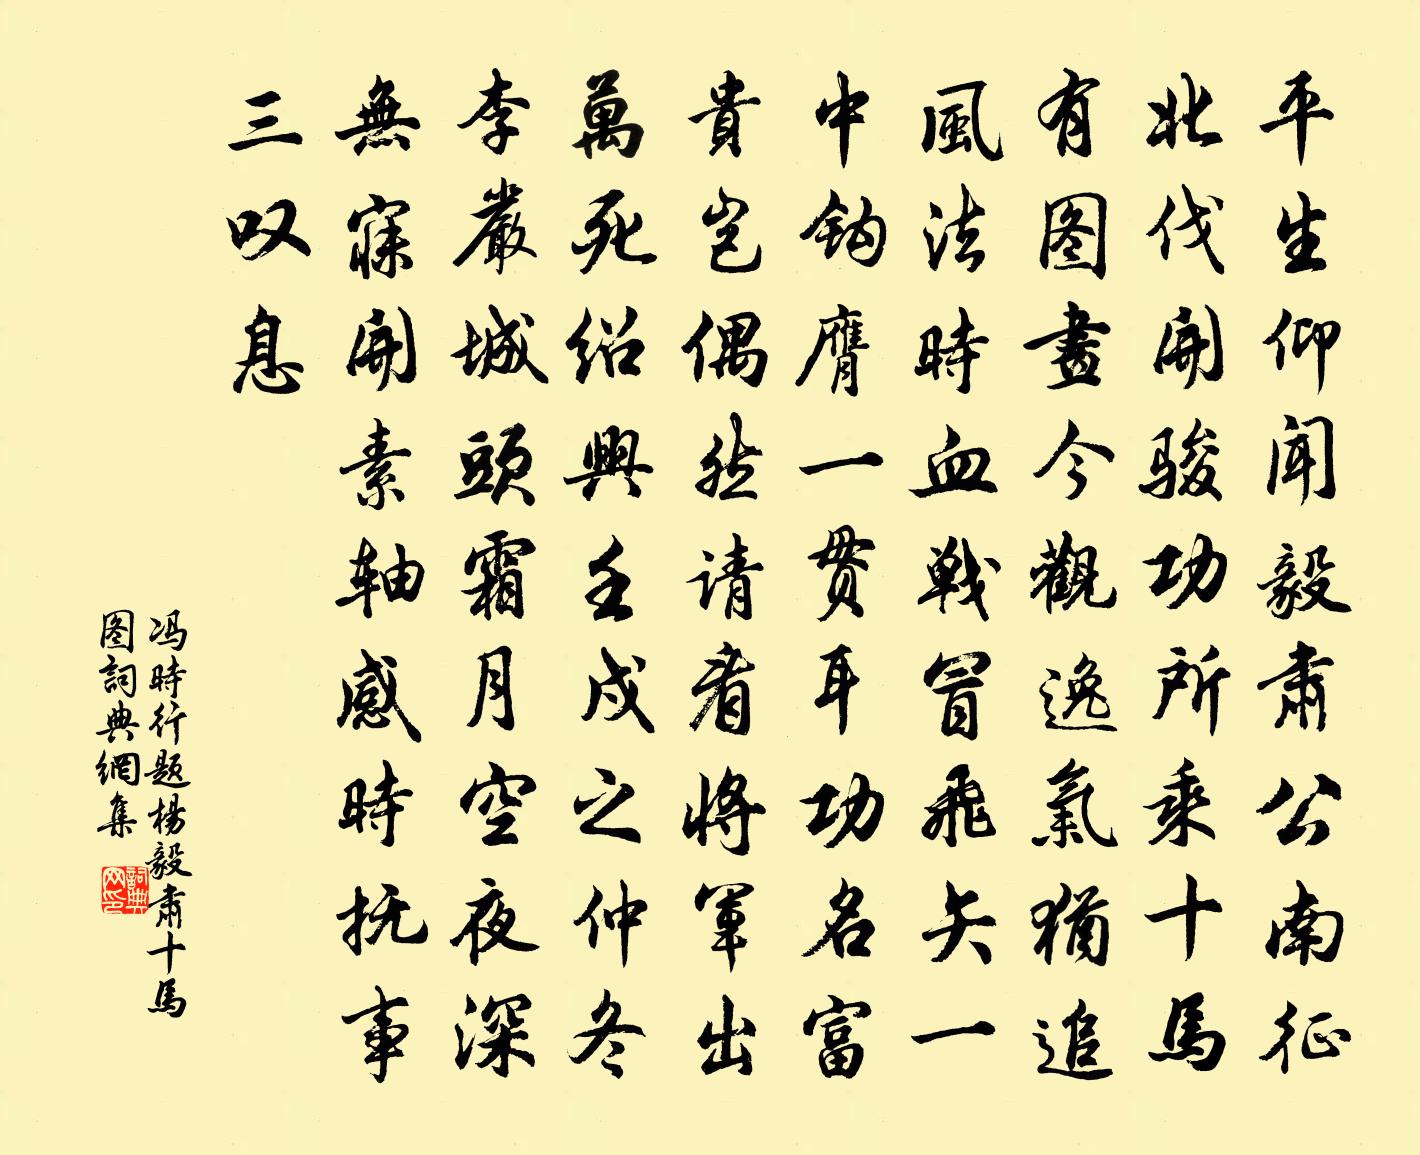 平生仰闻毅肃公南征
北伐開骏功所乘十馬
有图畫今觀逸氣猶追
風法時血戰冒飛矢一
中鈎膺一贯耳功名富
貴岂偶然请看將军出
萬死绍興壬戌之仲冬
李嚴城頭霜月空夜深
無寐開素轴感時抚事
三叹息
冯時行题楊毅肃十馬
图詞典網集
詞典网印